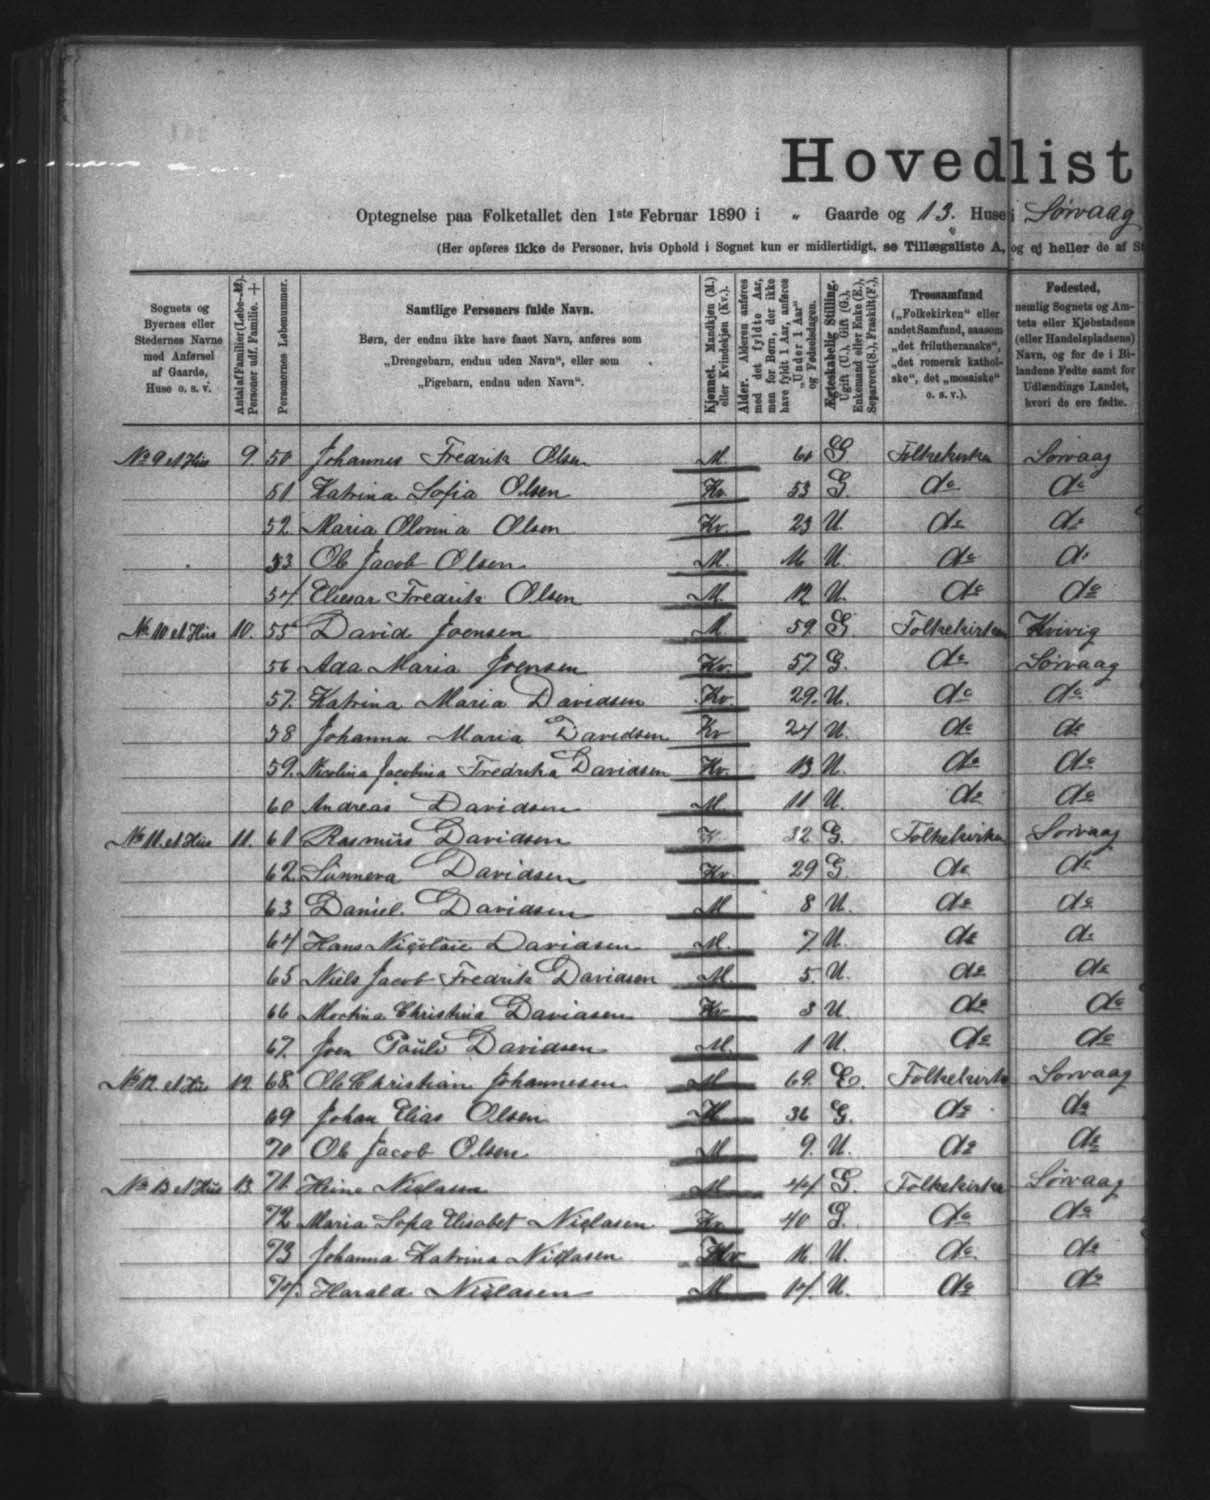 Hovedlist
Optegnelse paa Folketallet den 1ste Februar 1890 i „ Gaarde og 13. Huse i Sørvaag
(Her opføres ikke de Personer, hvis Ophold i Sognet kun er midlertidigt, se Tillægsliste A, og ej heller de af St
Sognets og Byernes eller Stedernes Navne med Anførsel af Gaarde, Huse o. s. v.
Antal af Familier (Løbe-№). Personer udf. Familie. +
Personernes Løbenummer.
Samtlige Personers fulde Navn.
Børn, der endnu ikke have faaet Navn, anføres som
„Drengebarn, endnu uden Navn“, eller som
„Pigebarn, endnu uden Navn“.
Kjønnet. Mandkjøn (M.) eller Kvindekjøn (Kv.).
Alder. Alderen anføres med det fyldte Aar, men for Børn, der ikke have fyldt 1 Aar, anføres „Under 1 Aar“ og Fødselsdagen.
Ægteskabelig Stilling. Ugift (U.), Gift (G.), Enkemand eller Enke (E.), Separeret (S.), Fraskilt (F.).
Trossamfund („Folkekirken“ eller andet Samfund, saasom „det frilutheranske“, „det romersk katholske“, det „mosaiske“ o. s. v.).
Fødested, nemlig Sognets og Amtets eller Kjøbstadens (eller Handelspladsens) Navn, og for de i Bilandene Fødte samt for Udlændinge Landet, hvori de ere fødte.
No 9 et Hus 9 50 Johannes Fredrik Olsen M. 60 G Folkekirken Sørvaag
51 Katrina Sofia Olsen Kv. 53 G. do do
52 Maria Olovina Olsen Kv. 23 U. do do
53 Ole Jacob Olsen M. 16 U. do do
54 Eliesar Fredrik Olsen M. 12 U. do do
No 10 et Hus 10. 55 David Joensen M. 59. G Folkekirken Kvivig
56 Ada Maria Joensen Kv. 57. G. do Sørvaag
57. Katrina Maria Davidsen Kv. 29. U. do do
58 Johanna Maria Davidsen Kv 24 U. do do
59. Nicolina Jacobina Fredrika Davidsen Kv. 13 U. do do
60 Andreas Davidsen M. 11 U. do do
No 11. et Hus 11. 61 Rasmus Davidsen 32 G. Folkekirken Sørvaag
62. Sunneva Davidsen Kv. 29 G. do do
63 Daniel. Davidsen M 8 U. do do
64 Hans Nicolaie Davidsen M. 7. U. do do
65 Niels Jacob Fredrik Davidsen M. 5. U. do do
66 Christina Davidsen Kv. 3 U. do do
67. Joen Pauli Davidsen M. 1 U. do do
No 12. et Hus 12. 68. Ole Christian Johannesen M 69. E. Folkekirke Sørvaag
69 Johan Elias Olsen M 36 G. do do
70 Ole Jacob Olsen M 9. U. do do
No 13 et Hus 13. 71. Heine Niclasen M 44 G. Folkekirke Sørvaag
72. Maria Sofia Elisabet Niclasen Kv 40 G. do do
73 Johanna Katrina Niclasen Kv 16 U. do do
74. Harald Niclasen M. 14. U. do do